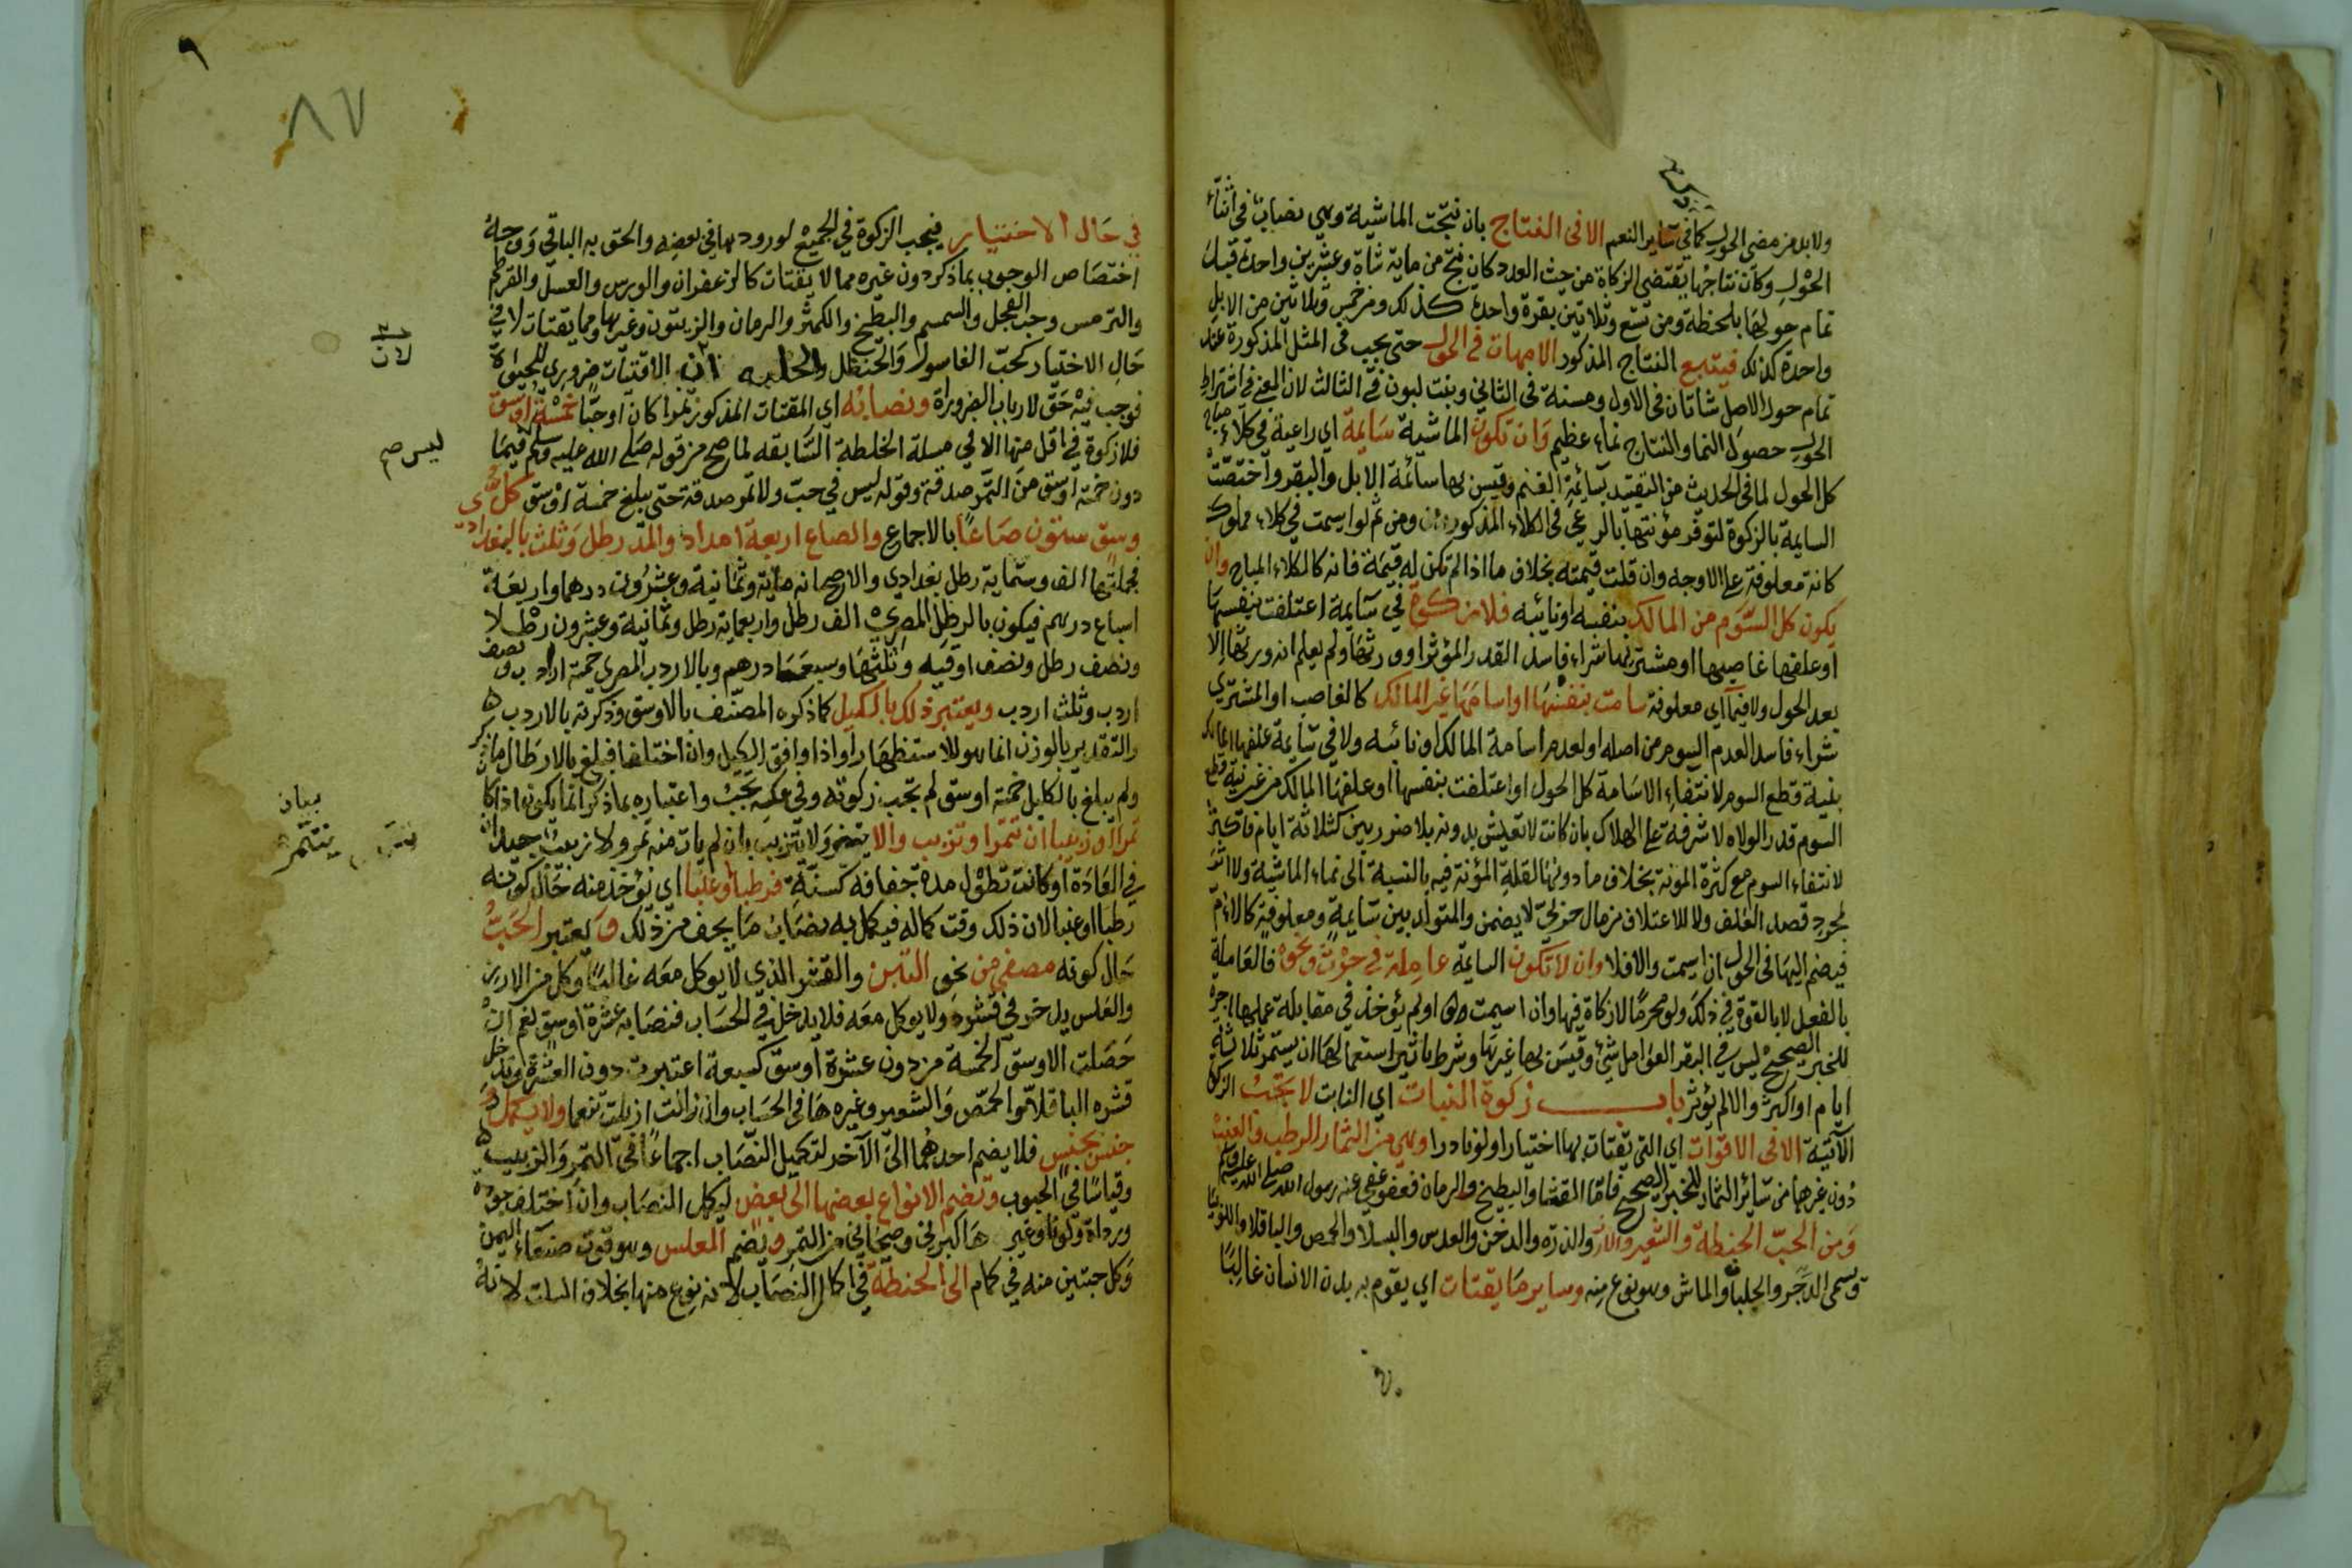 ولا بد من مضي الحول كما في ساير النعم الا في النتاج بان نتجت الماشية وهي نصاب في اثناء
الحول وكان نتاجها يقتضي الزكاة من حيث العدد كان نتج من ماية شاة وعشرين واحدة قبل
تمام حولها بلحظة ومن تسع وثلاثين بقرة واحدة كذلك ومن خمس وثلاثين من الابل
واحدة كذلك فيتبع النتاج المذكور الامهات في الحول حتى يجب في المثل المذكورة عند
تمام حول الاصل شاتان في الاول ومسنة في الثاني وبنت لبون في الثالث لان المعنى في اشتراط
الحول حصول النما والنتاج نماء عظيم وان تكون الماشية سايمة اي راعية في كلاء مباح
كل الحول لما في الحديث من التقييد بسائمة الغنم وقيس بها سائمة الابل والبقر واختصت
السايمة بالزكوة لتوفر مؤنتها بالرعي في الكلاء المذكور ومن ثم لو اسيمت في كلاء مملوك
كانت معلوفة على الاوجه وان قلت قيمته بخلاف ما اذا لم تكن له قيمة فانه كالكلاء المباح وان
يكون كل السوم من المالك بنفسه او نائبه فلا زكوة في سايمة اعتلفت بنفسها
او علفها غاصبها او مشتريها شراء فاسدا القدر المؤثر او ورثها ولم يعلم انه ورثها الا
بعد الحول ولا فيما اي معلوفة سامت بنفسها او اسامها غير المالك كالغاصب او المشتري
شراء فاسدا لعدم السوم من اصله او لعدم اسامة المالك او نائبه ولا في سايمة علفها المالك
بنية قطع السوم لانتفاء الاسامة كل الحول او اعتلفت بنفسها او علفها المالك من غير نية قطع
السوم قدرا لولاه لاشرفت على الهلاك بان كانت لا تعيش بدونه بلا ضرر بين كثلاثة ايام فاكثر
لانتفاء السوم مع كثرة المونة بخلاف ما دونها لقلة المؤنة فيه بالنسبة الى نماء الماشية ولا اثر
لمجرد قصد العلف ولا للاعتلاف من مال حربي لا يضمن والمتولد بين سايمة ومعلوفة كالام
فيضم اليها في الحول ان اسيمت والا فلا وان لا تكون السايمة عاملة في حرث ونحوه فالعاملة
بالفعل لا بالقوة في ذلك ولو محرما لا زكاة فيها وان اسيمت او لم يؤخذ في مقابلة عملها اجرة
للخبر الصحيح ليس في البقر العوامل شيء وقيس بها غيرها وشرط تاثير استعمالها ان يستمر ثلاثة
ايام او اكثر والا لم يؤثر باب زكوة النبات اي النابت لا تجب الزكوة
الآتية الا في الاقوات اي التي تقتات بها اختيارا ولو نادرا وهي من الثمار الرطب والعنب
دون غيرهما من سائر الثمار للخبر الصحيح فاما القثا والبطيخ والرمان فعفو عفي عنه رسول الله صلى الله عليه وسلم
ومن الحب الحنطة والشعير والارز والذره والدخن والعدس والبسلا والحمص والباقلا واللوبيا
وتسمى الدجر والجلبان والماش وهو نوع منه وساير ما يقتات اي يقوم به بدن الانسان غالبا
٨٧
في حال الاختيار فيجب الزكوة في الجميع لورودها في بعضه والحق به الباقي ووجه
اختصاص الوجوب بما ذكر دون غيره مما لا يقتات كالزعفران والورس والعسل والقرطم
والترمس وحب الفجل والسمسم والبطيخ والكمثر والرمان والزيتون وغيرها ومما يقتات لا في
حال الاختيار كحب الغاسول والحنظل والحلبه ان الاقتيات ضروري للحيوة
لان
فوجب فيه حق لارباب الضرورة ونصابه اي المقتات المذكور تمرا كان او حبا خمسة اوسق
فلا زكوة في اقل منها الا في مسلة الخلطة السابقه لما صح من قوله صلى الله عليه وسلم فيما
ليس صح
دون خمسة اوسق من التمر صدقة وقوله ليس في حب ولا تمر صدقة حتى يبلغ خمسة اوسق كل
وسق ستون صاعا بالاجماع والصاع اربعة امداد والمد رطل وثلث بالبغدادي
فجملتها الف وستماية رطل بغدادي والاصح انه ماية وثمانية وعشرون درهما واربعة
اسباع درهم فيكون بالرطل المصري الف رطل واربعماية رطل وثمانية وعشرون رطلا
ونصف رطل ونصف اوقيه وثلثها وسبعا درهم وبالاردب المصري خمسة ارادب ونصف
اردب وثلث اردب ويعتبر ذلك بالكيل كما ذكره المصنف بالاوسق وذكرته بالاردب
والتقدير بالوزن انما هو للاستظهار او اذا وافق الكيل وان اختلفا فبلغ بالارطال ما ذكر
ولم يبلغ بالكايل خمسة اوسق لم تجب زكوته وفي عكسه تجب واعتباره بما ذكر انما يكون اذا كان
بيان يتتمر
تمرا او زبيبا ان تتمر او تزبب والا يتتمر ولا يتزبب بان لم يات منه تمر ولا زبيب جيدان
في العادة او كانت تطول مدة جفافه كسنة فرطبا وعنبا اي يؤخذ منه حال كونه
رطبا او عنبا لان ذلك وقت كماله فيكمل به نصاب ما يجف من ذلك ويعتبر الحب
حال كونه مصفى من نحو التبن والقشر الذي لا يوكل معه غالبا وكل من الارز
والعلس يدخر في قشره ولا يوكل معه فلا يدخل في الحساب فنصابه عشرة اوسق نعم ان
حصلت الاوسق الخمسة من دون عشرة اوسق كسبعة اعتبرت دون العشرة وتدخل
قشره الباقلا والحمص والشعير وغيرها في الحساب وان زالت ازيلت تنعما ولا يكمل
جنس بجنس فلا يضم احدهما الى الآخر لتكميل النصاب اجماعا في التمر والزبيب
وقياسا في الحبوب وتضم الانواع بعضها الى بعض ليكمل النصاب وان اختلف جودة
ورداة ولونا وغيرها كبرني وصيحاني من التمر ويضم العلس وهو قوت صنعاء اليمن
وكل حبتين منه في كمام الى الحنطة في اكمال النصاب لانه نوع منها بخلاف السلت لانه